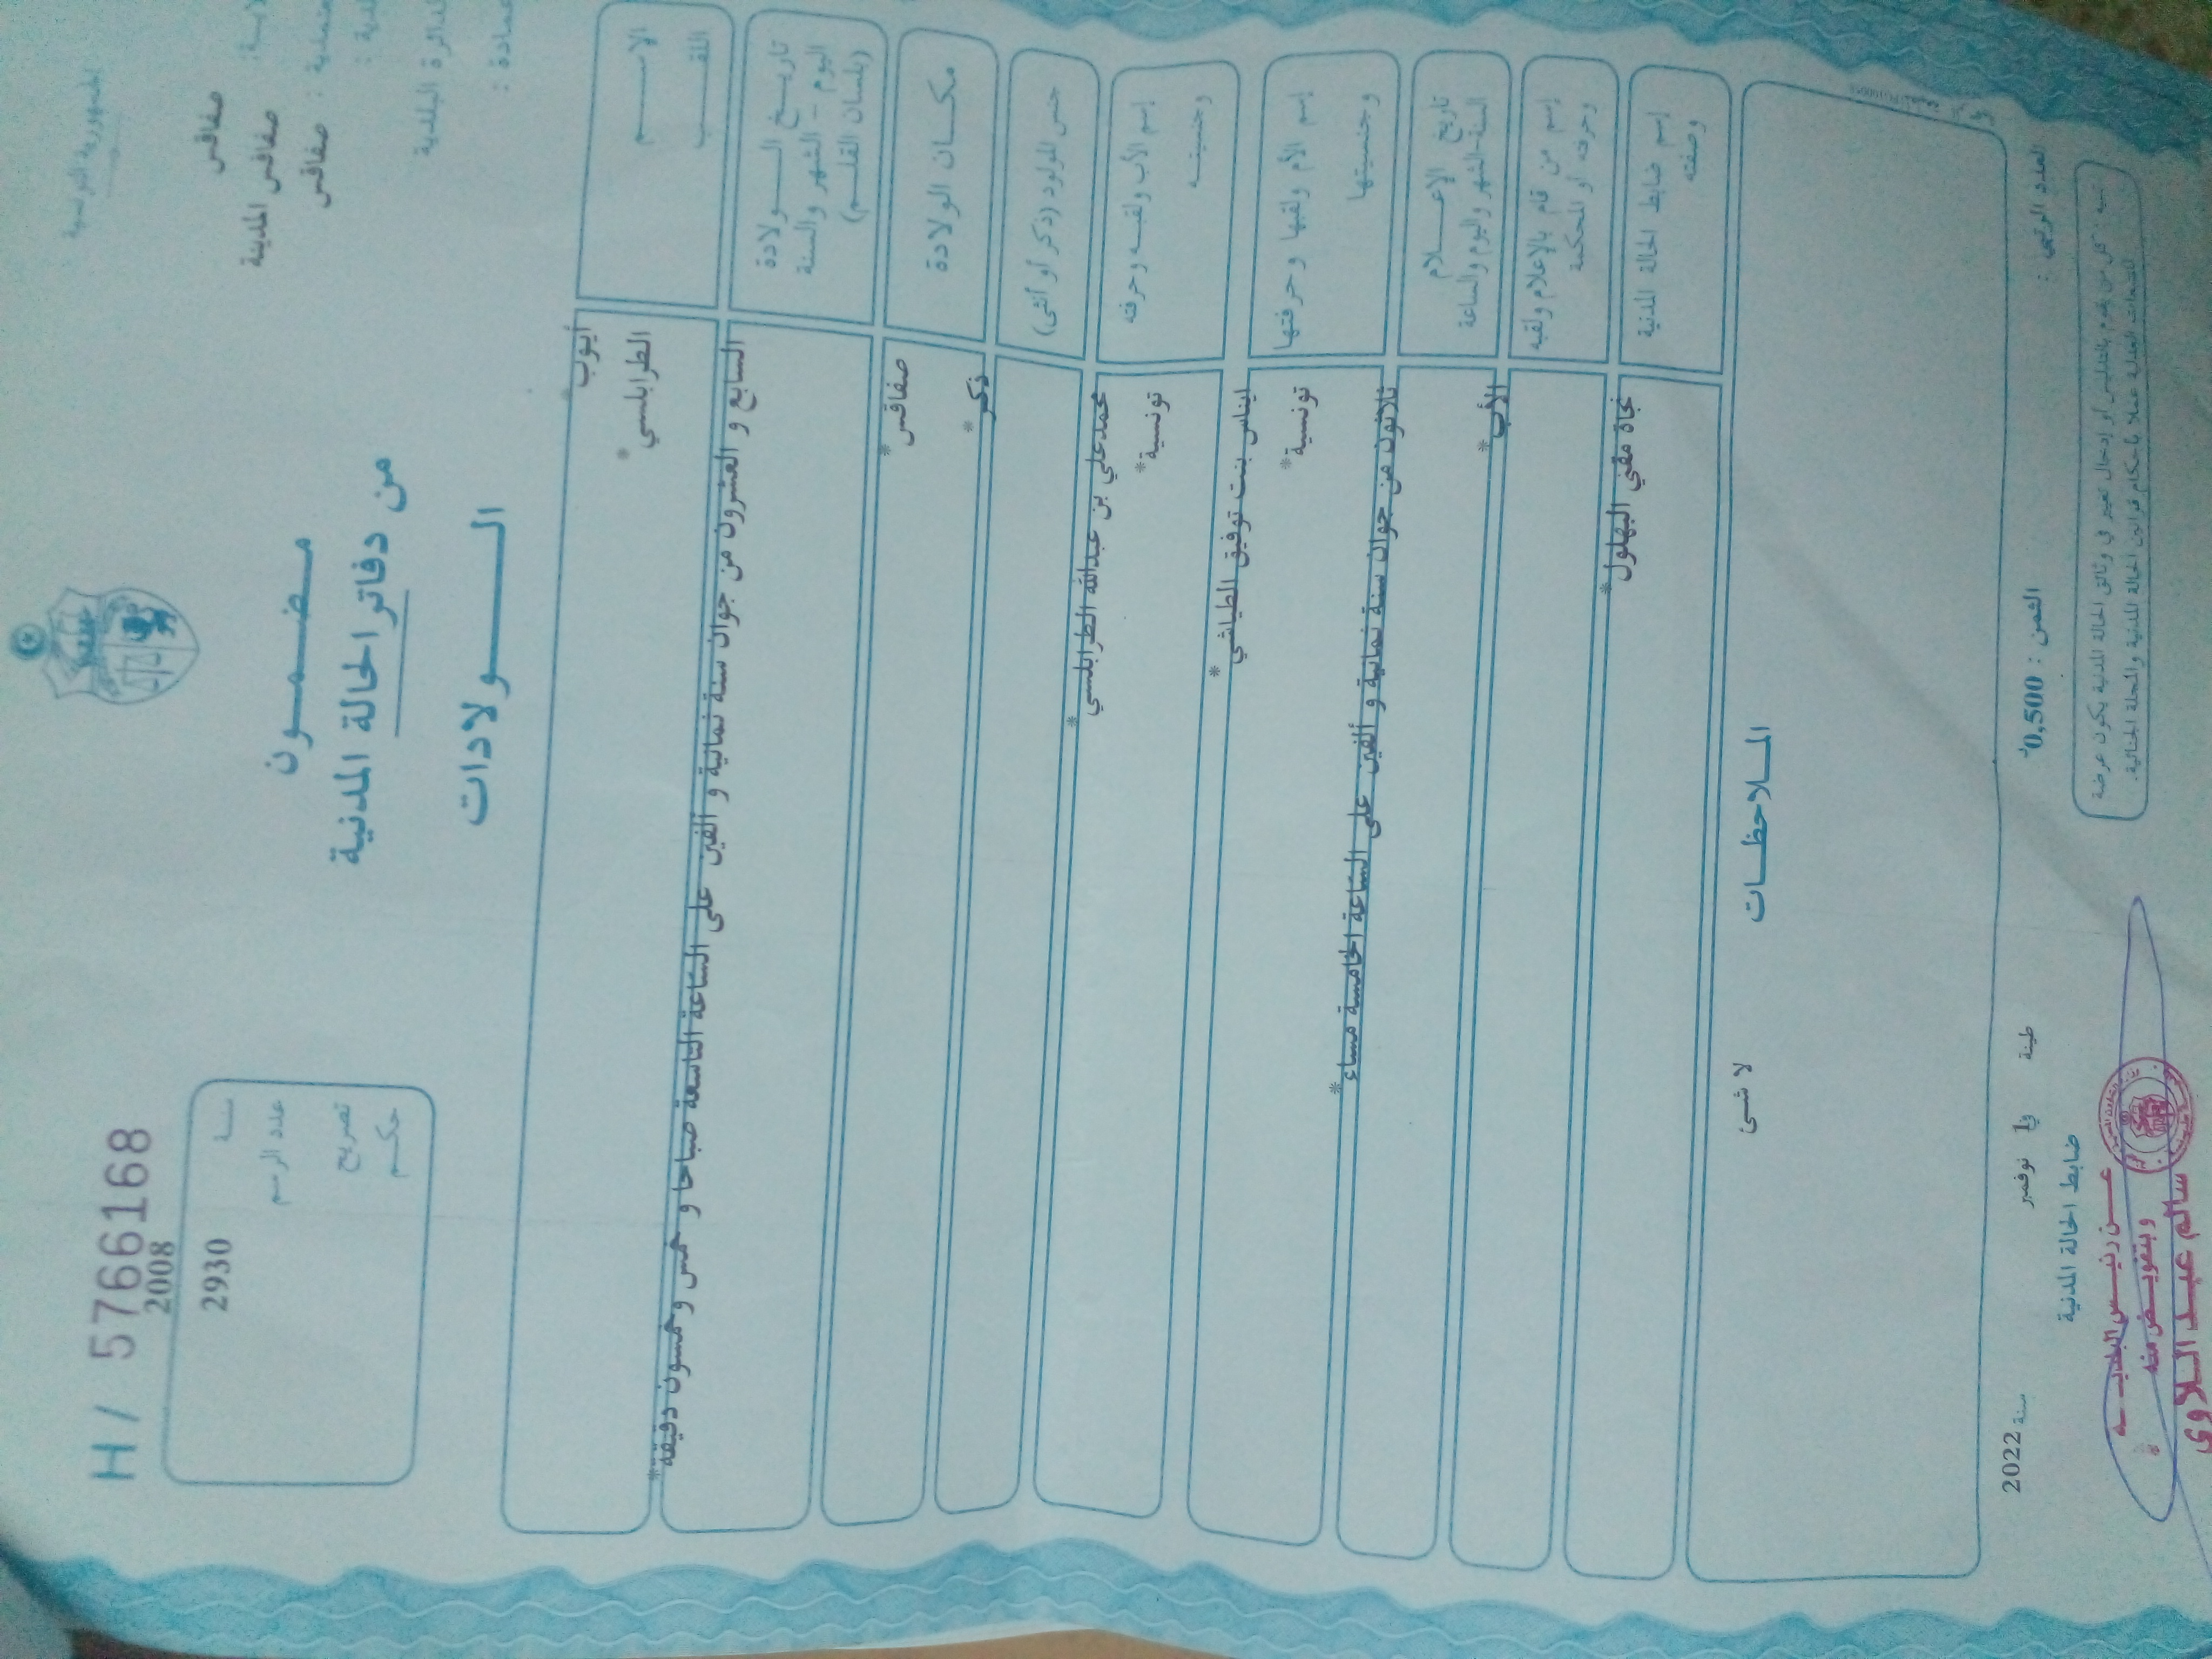 الجمهورية التونسية
صفاقس
صفاقس المدينة
صفاقس
الدائرة البلدية
مضمون
من دفاتر الحالة المدنية
الولادات
H/ 57661168
سنة 2008
عدد الرسم 2930
تصريح
حكم
الاسم أيوب*
اللقب الطرابلسي*
تاريخ الولادة
اليوم - الشهر والسنة
(بلسان القلم)
السابع و العشرون من جوان سنة ثمانية و ألفين على الساعة التاسعة صباحا و خمس وخمسون دقيقة*
مكان الولادة صفاقس*
جنس المولود (ذكر أو أنثى) ذكر*
إسم الأب ولقبه وحرفته محمدعلي بن عبدالله الطرابلسي*
وجنسيته تونسية*
إسم الأم ولقبها وحرفتها ايناس بنت توفيق الطياشي*
وجنسيتها تونسية*
تاريخ الإعلام
السنة-الشهر واليوم والساعة
ثلاثون من جوان سنة ثمانية و ألفين على الساعة الخامسة مساء*
إسم من قام بالإعلام ولقبه
وحرفته أو المحكمة
الأب*
إسم ضابط الحالة المدنية
وصفته
نجاة مقني البهلول*
الملاحظات
لا شئ
العدد الرتبي :
الثمن : 0,500د
طينة في 1 نوفمبر سنة 2022
ضابط الحالة المدنية
تنبيه : كل من يقوم بالتدليس أو إدخال تغيير في وثائق الحالة المدنية يكون عرضة
للتتبعات العدلية عملا بأحكام قوانين الحالة المدنية والمجلة الجنائية.
عن رئيس البلدية
وبتفويض منه
سالم عبد اللاوي